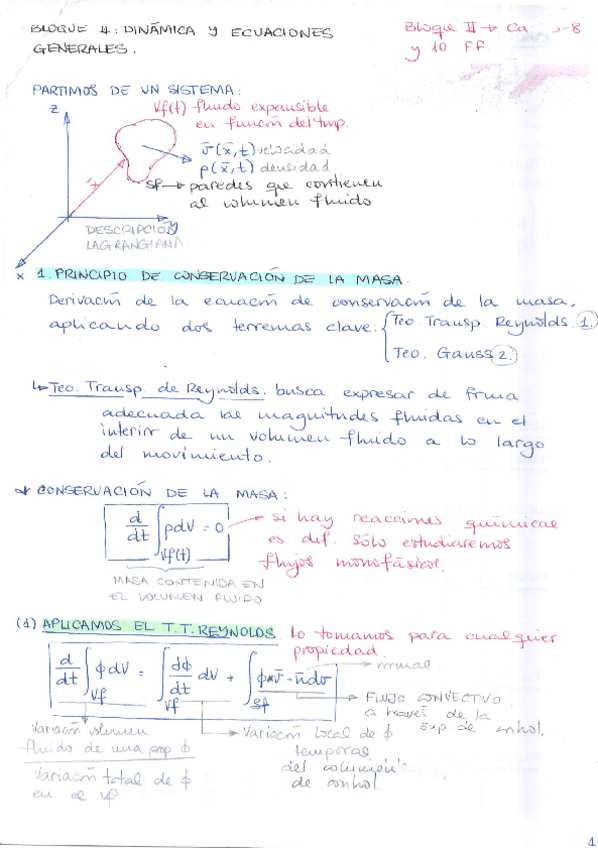 BLOQUE 4: DINÁMICA Y ECUACIONES
GENERALES.
Bloque II → Ca -8
y 10 F.F.
PARTIMOS DE UN SISTEMA:
z
Vf(t) fluido expansible
en función del tmp.
v̄(x̄,t) velocidad
ρ(x̄,t) densidad
Sf → paredes que contienen
al volumen fluido
DESCRIPCIÓN
LAGRANGIANA
y
x
1. PRINCIPIO DE CONSERVACIÓN DE LA MASA.
Derivación de la ecuación de conservación de la masa,
aplicando dos teoremas clave: { Teo. Transp. Reynolds. 1.
Teo. Gauss 2.
↳ Teo. Transp. de Reynolds: busca expresar de forma
adecuada las magnitudes fluidas en el
interior de un volumen fluido a lo largo
del movimiento.
CONSERVACIÓN DE LA MASA:
d/dt ∫Vf(t) ρdV = 0
→ si hay reacciones químicas
es dif. Sólo estudiaremos
flujos monofásicos.
MASA CONTENIDA EN
EL VOLUMEN FLUIDO
(1) APLICAMOS EL T.T. REYNOLDS. Lo tomamos para cualquier
propiedad.
d/dt ∫Vf ϕdV = ∫Vf dϕ/dt dV + ∫Sf ϕ v̄ · n̄ dσ
→ normal
→ FLUJO CONVECTIVO
a través de la
sup de control.
Variación volumen
fluido de una prop ϕ
Variación total de ϕ
en el Vf
→ Variación local de ϕ
temporas
del volumen
de control
1